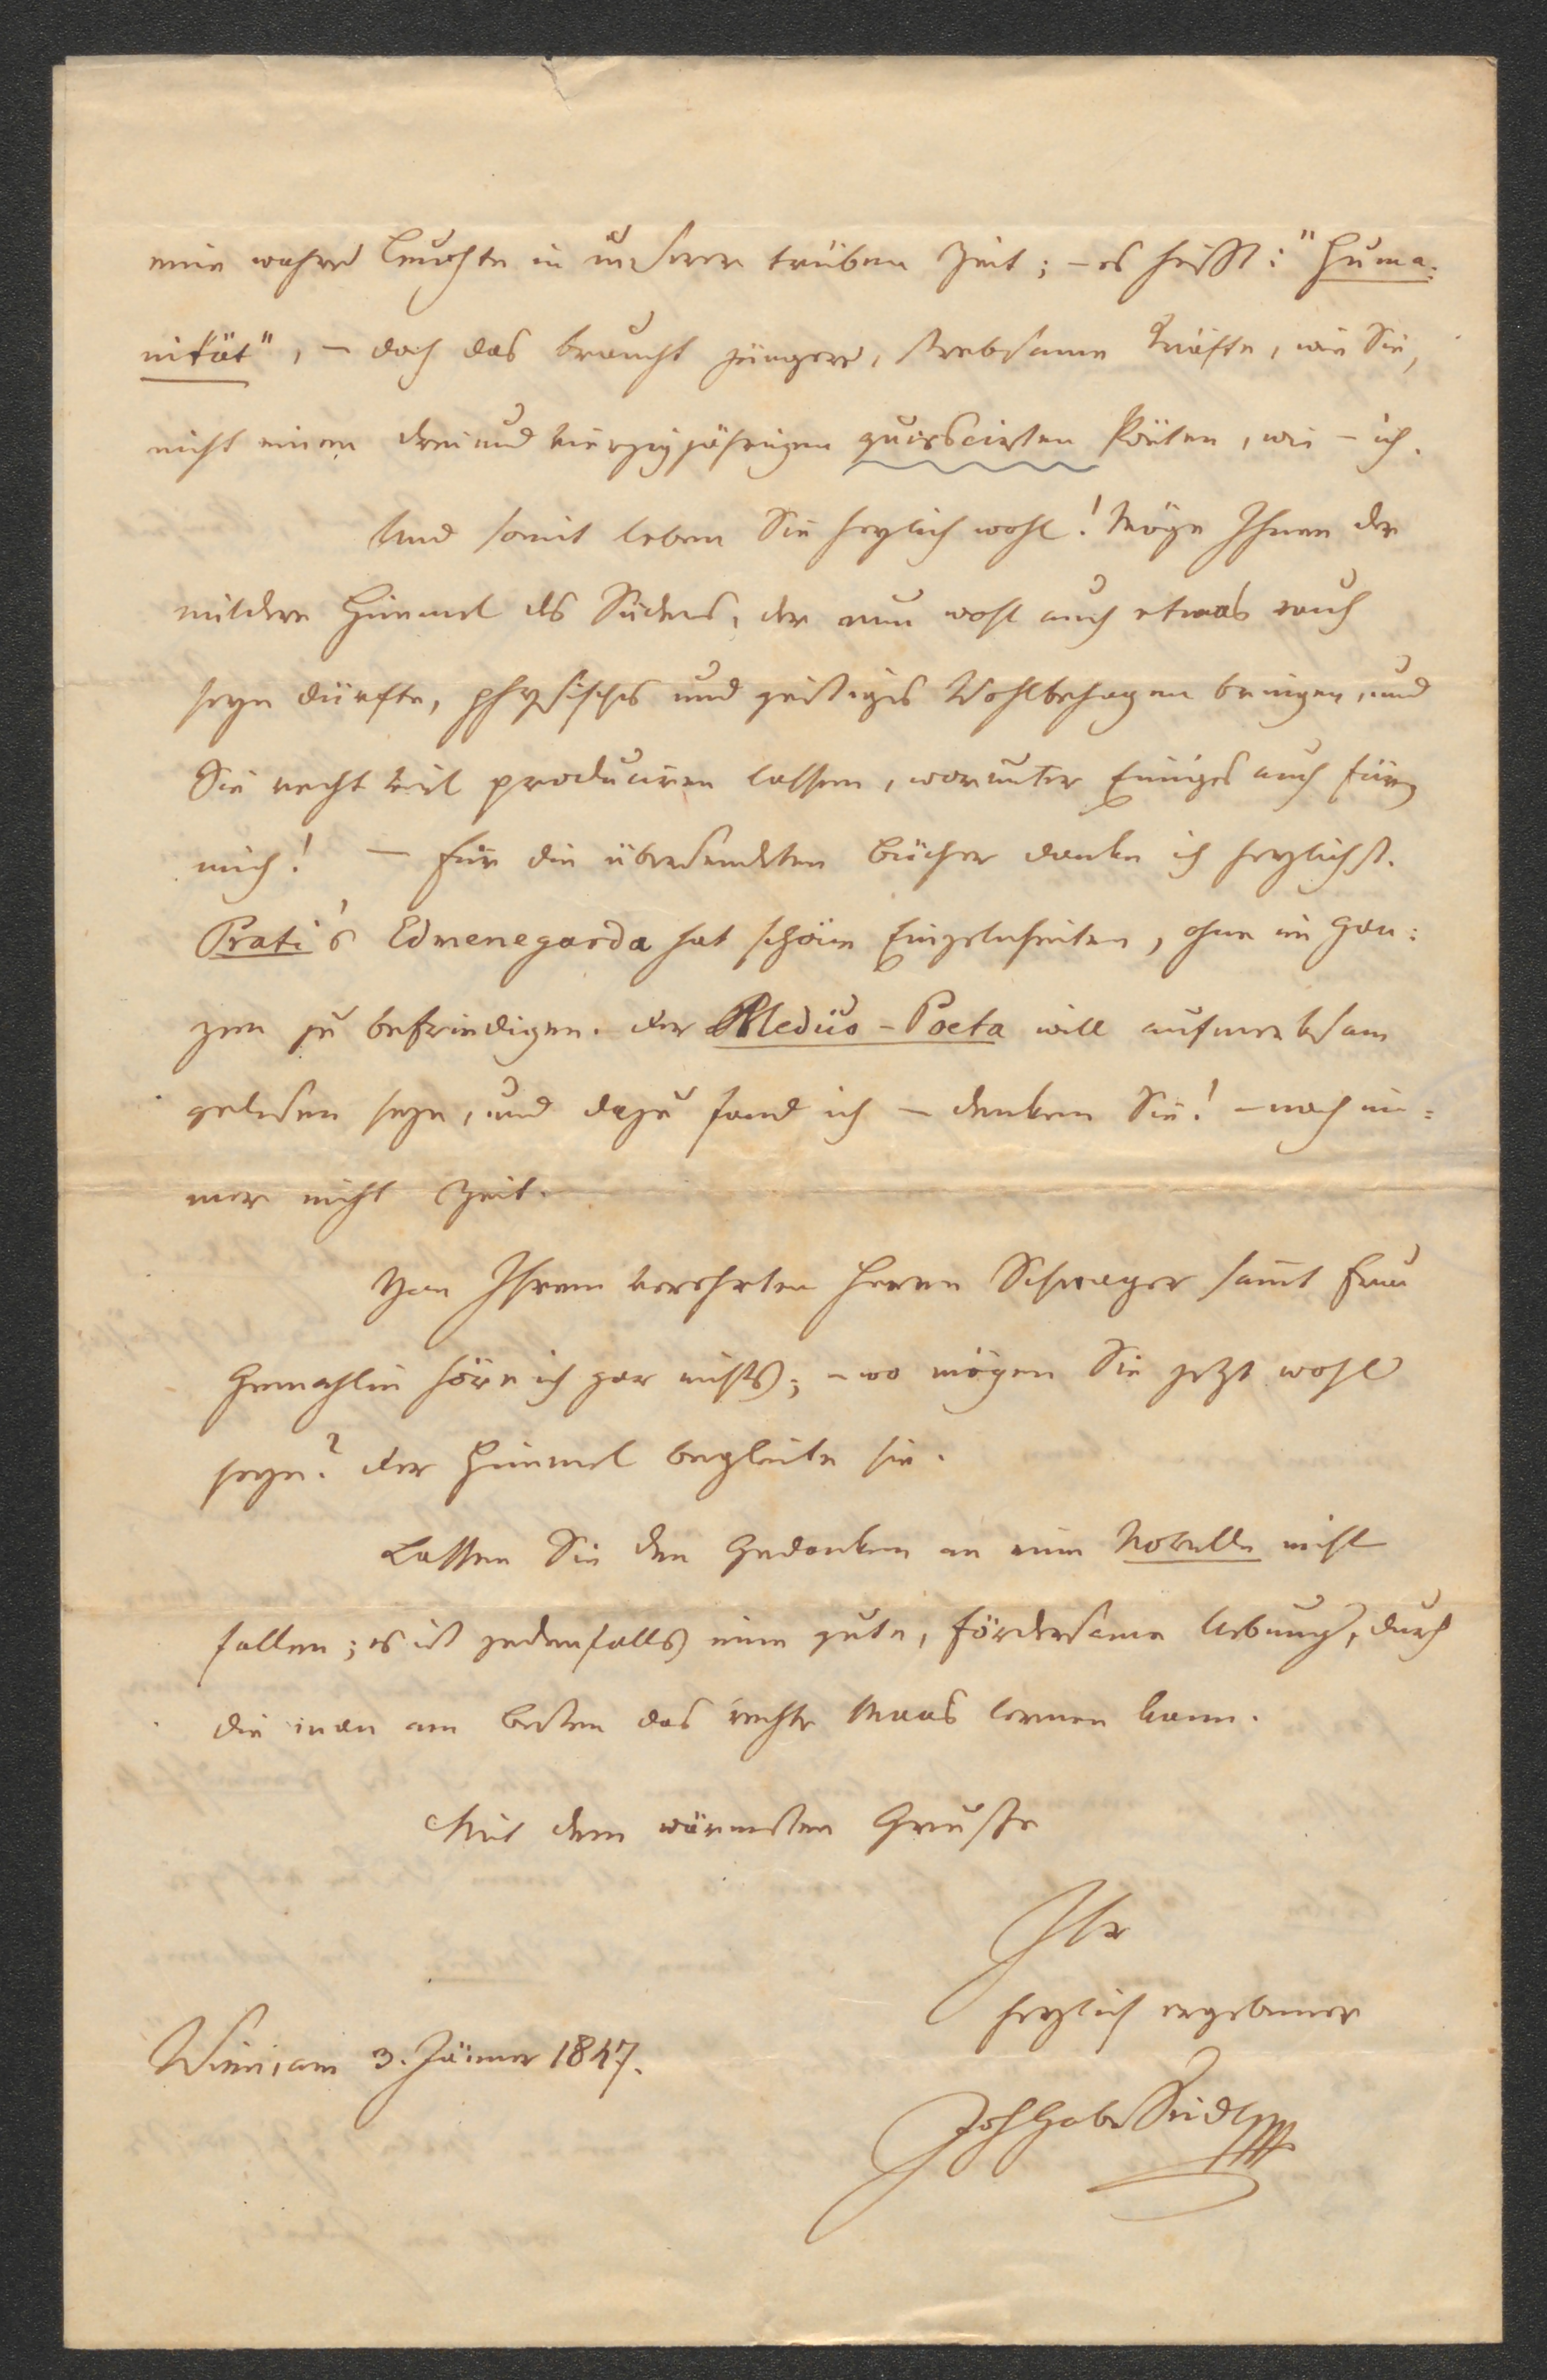 eine wahre Leuchte in unserer trüben Zeit; – es heißt: "Huma:
nität", – doch das braucht jüngere, strebsame Kräfte, wie Sie,
nicht einen dreiundvierzigjährigen quiescirten Poëten, wie – ich.
Und somit leben Sie herzlich wohl! Möge Ihnen der
mildere Himmel des Südens, der nun wohl auch etwas rauh
seyn dürfte, physisches und geistiges Wohlbehagen bringen, und
Sie recht viel produciren lassen, worunter Einiges auch für
mich! – Für die übersendeten Bücher danke ich herzlichst.
Prati's Edmenegarda hat schöne Einzelnheiten, ohne im Gan:
zen zu befriedigen. Der Medico-Poeta will aufmerksam
gelesen seyn, und dazu fand ich – denken Sie! – noch im=
mer nicht Zeit.
Von Ihrem verehrten Herrn Schwager sam̄t Frau
Gemahlin höre ich gar nichts; – wo mögen Sie jetzt wohl
seyn? Der Himmel begleite sie.
Lassen Sie den Gedanken an eine Novelle nicht
fallen; es ist jedenfalls eine gute, fördersame Uebung, durch
die man am besten das rechte Maas lernen kann.
Mit dem wärmsten Gruße
Ihr
herzlich ergebener
Wien, am 3. Jänner 1847.
Joh Gabr Seidl